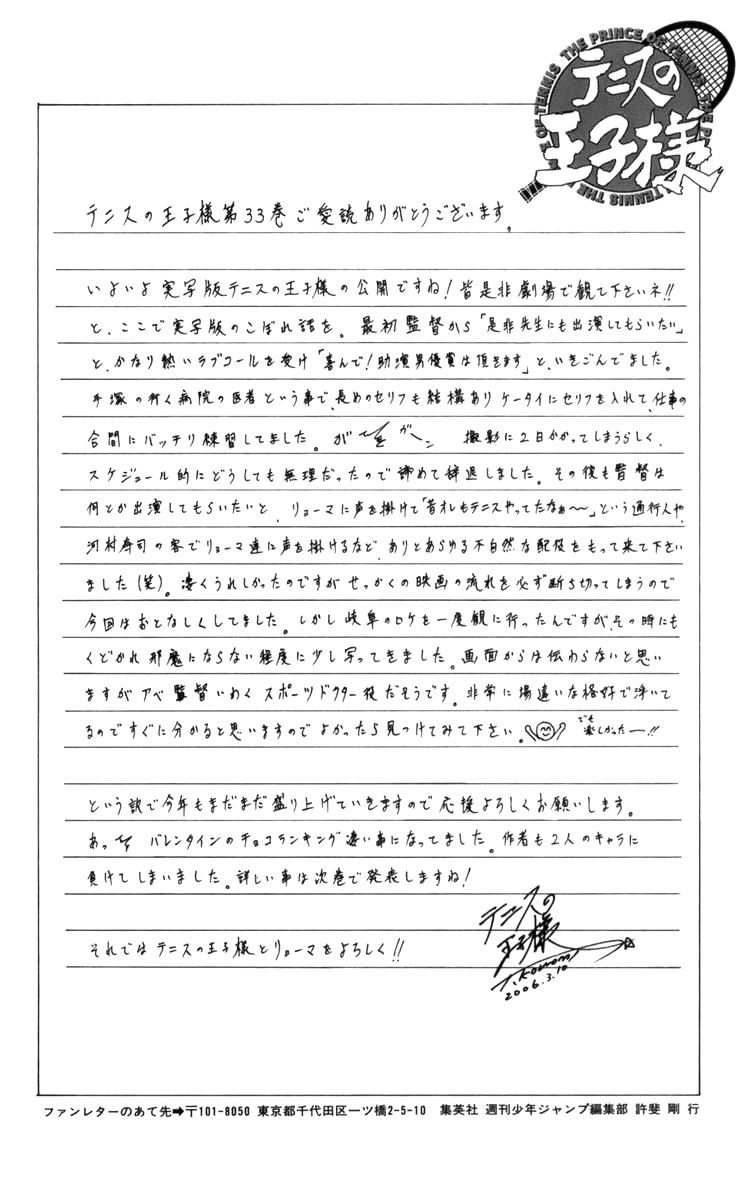 THE PRINCE OF TENNIS
テニスの
王子様
テニスの王子様第33巻ご愛読ありがとうございます。
いよいよ実写版テニスの王子様の公開ですね!皆是非劇場で観て下さいネ!!
と、ここで実写版のこぼれ話を。最初監督から「是非先生にも出演してもらいたい」
と、かなり熱いラブコールを受け「喜んで!助演男優賞は頂きます」と、いきごんでました。
手塚の行く病院の医者という事で、長めのセリフも結構あり ケータイにセリフを入れて、仕事の
合間にバッチリ練習してました。が ガーン 撮影に2日かかってしまうらしく、
スケジュール的にどうしても無理だったので諦めて辞退しました。その後も監督は
何とか出演してもらいたいと、リョーマに声を掛けて「昔オレもテニスやってたなぁ〜」という通行人や、
河村寿司の客でリョーマ達に声を掛けるなど、ありとあらゆる不自然な配役をもって来て下さい
ました(笑)。凄くうれしかったのですが せっかくの映画の流れを必ず断ち切ってしまうので
今回はおとなしくしてました。しかし岐阜のロケを一度観に行ったんですが、その時にも
くどかれ 邪魔にならない程度に少し写ってきました。画面からは伝わらないと思い
ますがアベ監督いわく スポーツドクター役だそうです。非常に場違いな格好で浮いて
るのですぐに分かると思いますので よかったら見つけてみて下さい。でも楽しかったー!!
という訳で今年もまだまだ盛り上げていきますので応援よろしくお願いします。
あっ バレンタインのチョコランキング凄い事になってました。作者も2人のキャラに
負けてしまいました。詳しい事は次巻で発表しますね!
それではテニスの王子様とリョーマをよろしく!!
テニスの
王子様
T.Konomi
2006.3.10
ファンレターのあて先➡〒101-8050 東京都千代田区一ツ橋2-5-10 集英社 週刊少年ジャンプ編集部 許斐 剛 行